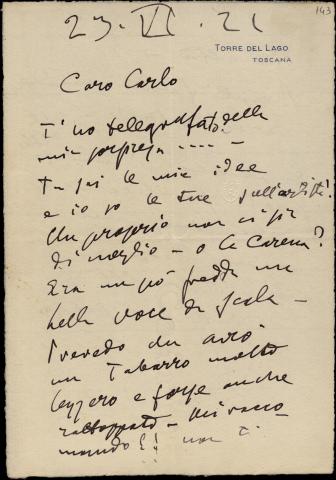 143
23. VI. 21
TORRE DEL LAGO
TOSCANA
Caro Carlo
T'ho telegrafato della
mia sorpresa ----
Tu sai le mie idee
e io so le tue sull'artista!
Ma proprio non ci sia
di meglio - o la Carena?
Era un po' fredda ma
bella voce da Scala -
Prevedo che avrò
un Tabarro molto
leggero e forse anche
rattoppato - Mi racco-
mando!! non